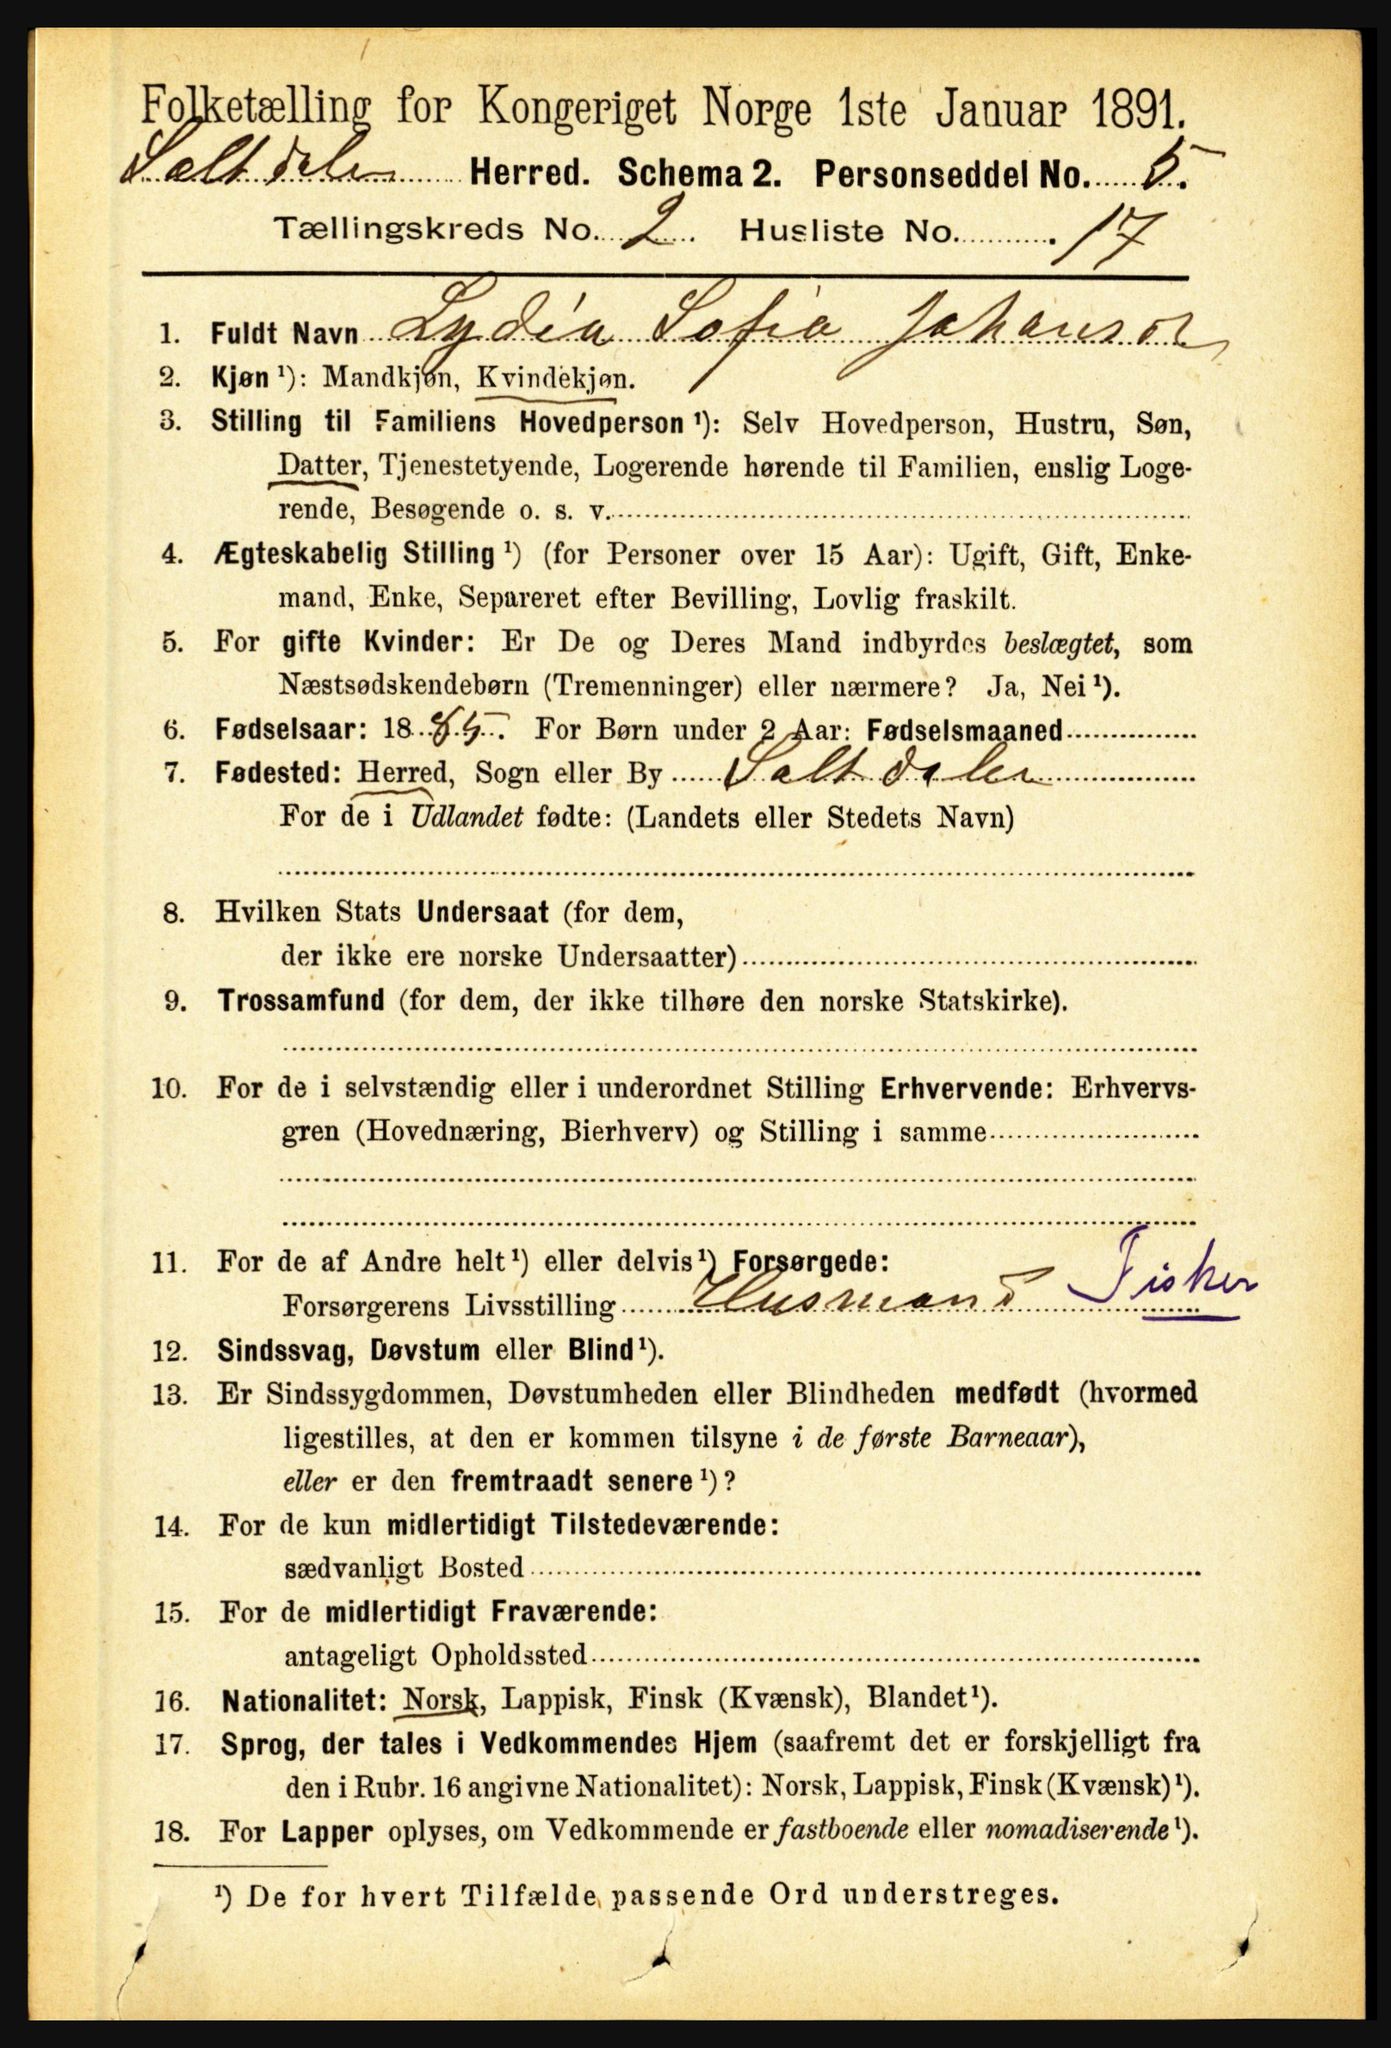 Folketælling for Kongeriget Norge 1ste Januar 1891.
Saltdalen Herred. Schema 2. Personseddel No. 5.
Tællingskreds No. 2. Husliste No. 17
1. Fuldt Navn Lydia Sofia Johansd
2. Kjøn ¹): Mandkjøn, Kvindekjøn.
3. Stilling til Familiens Hovedperson ¹): Selv Hovedperson, Hustru, Søn,
Datter, Tjenestetyende, Logerende hørende til Familien, enslig Loge-
rende, Besøgende o. s. v.
4. Ægteskabelig Stilling ¹) (for Personer over 15 Aar): Ugift, Gift, Enke-
mand, Enke, Separeret efter Bevilling, Lovlig fraskilt.
5. For gifte Kvinder: Er De og Deres Mand indbyrdes beslægtet, som
Næstsødskendebørn (Tremenninger) eller nærmere? Ja, Nei ¹).
6. Fødselsaar: 1885. For Børn under 2 Aar: Fødselsmaaned
7. Fødested: Herred, Sogn eller By Saltdalen
For de i Udlandet fødte: (Landets eller Stedets Navn)
8. Hvilken Stats Undersaat (for dem,
der ikke ere norske Undersaatter)
9. Trossamfund (for dem, der ikke tilhøre den norske Statskirke).
10. For de i selvstændig eller i underordnet Stilling Erhvervende: Erhvervs-
gren (Hovednæring, Bierhverv) og Stilling i samme
11. For de af Andre helt ¹) eller delvis ¹) Forsørgede:
Forsørgerens Livsstilling Husmand Fisker
12. Sindssvag, Døvstum eller Blind ¹).
13. Er Sindssygdommen, Døvstumheden eller Blindheden medfødt (hvormed
ligestilles, at den er kommen tilsyne i de første Barneaar),
eller er den fremtraadt senere ¹)?
14. For de kun midlertidigt Tilstedeværende:
sædvanligt Bosted
15. For de midlertidigt Fraværende:
antageligt Opholdssted
16. Nationalitet: Norsk, Lappisk, Finsk (Kvænsk), Blandet ¹).
17. Sprog, der tales i Vedkommendes Hjem (saafremt det er forskjelligt fra
den i Rubr. 16 angivne Nationalitet): Norsk, Lappisk, Finsk (Kvænsk) ¹).
18. For Lapper oplyses, om Vedkommende er fastboende eller nomadiserende ¹).
¹) De for hvert Tilfælde passende Ord understreges.